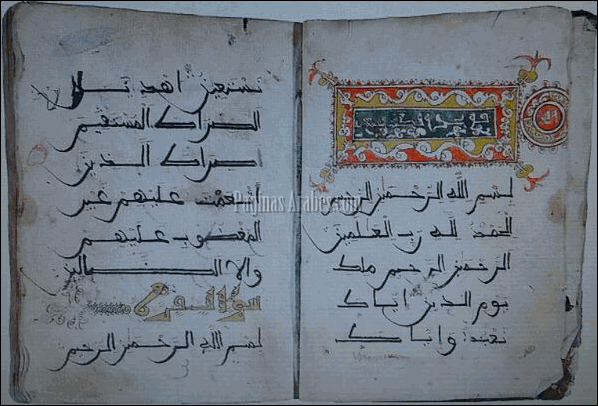 بسم الله الرحمن الرحيم
الحمد لله رب العلمين
الرحمن الرحيم ملك
يوم الدين اياك
نعبد واياك
نستعين اهدنا
الصراط المستقيم
صراط الذين
انعمت عليهم غير
المغضوب عليهم
ولا الضالين
سورة البقرة
بسم الله الرحمن الرحيم
Paginas Arabes